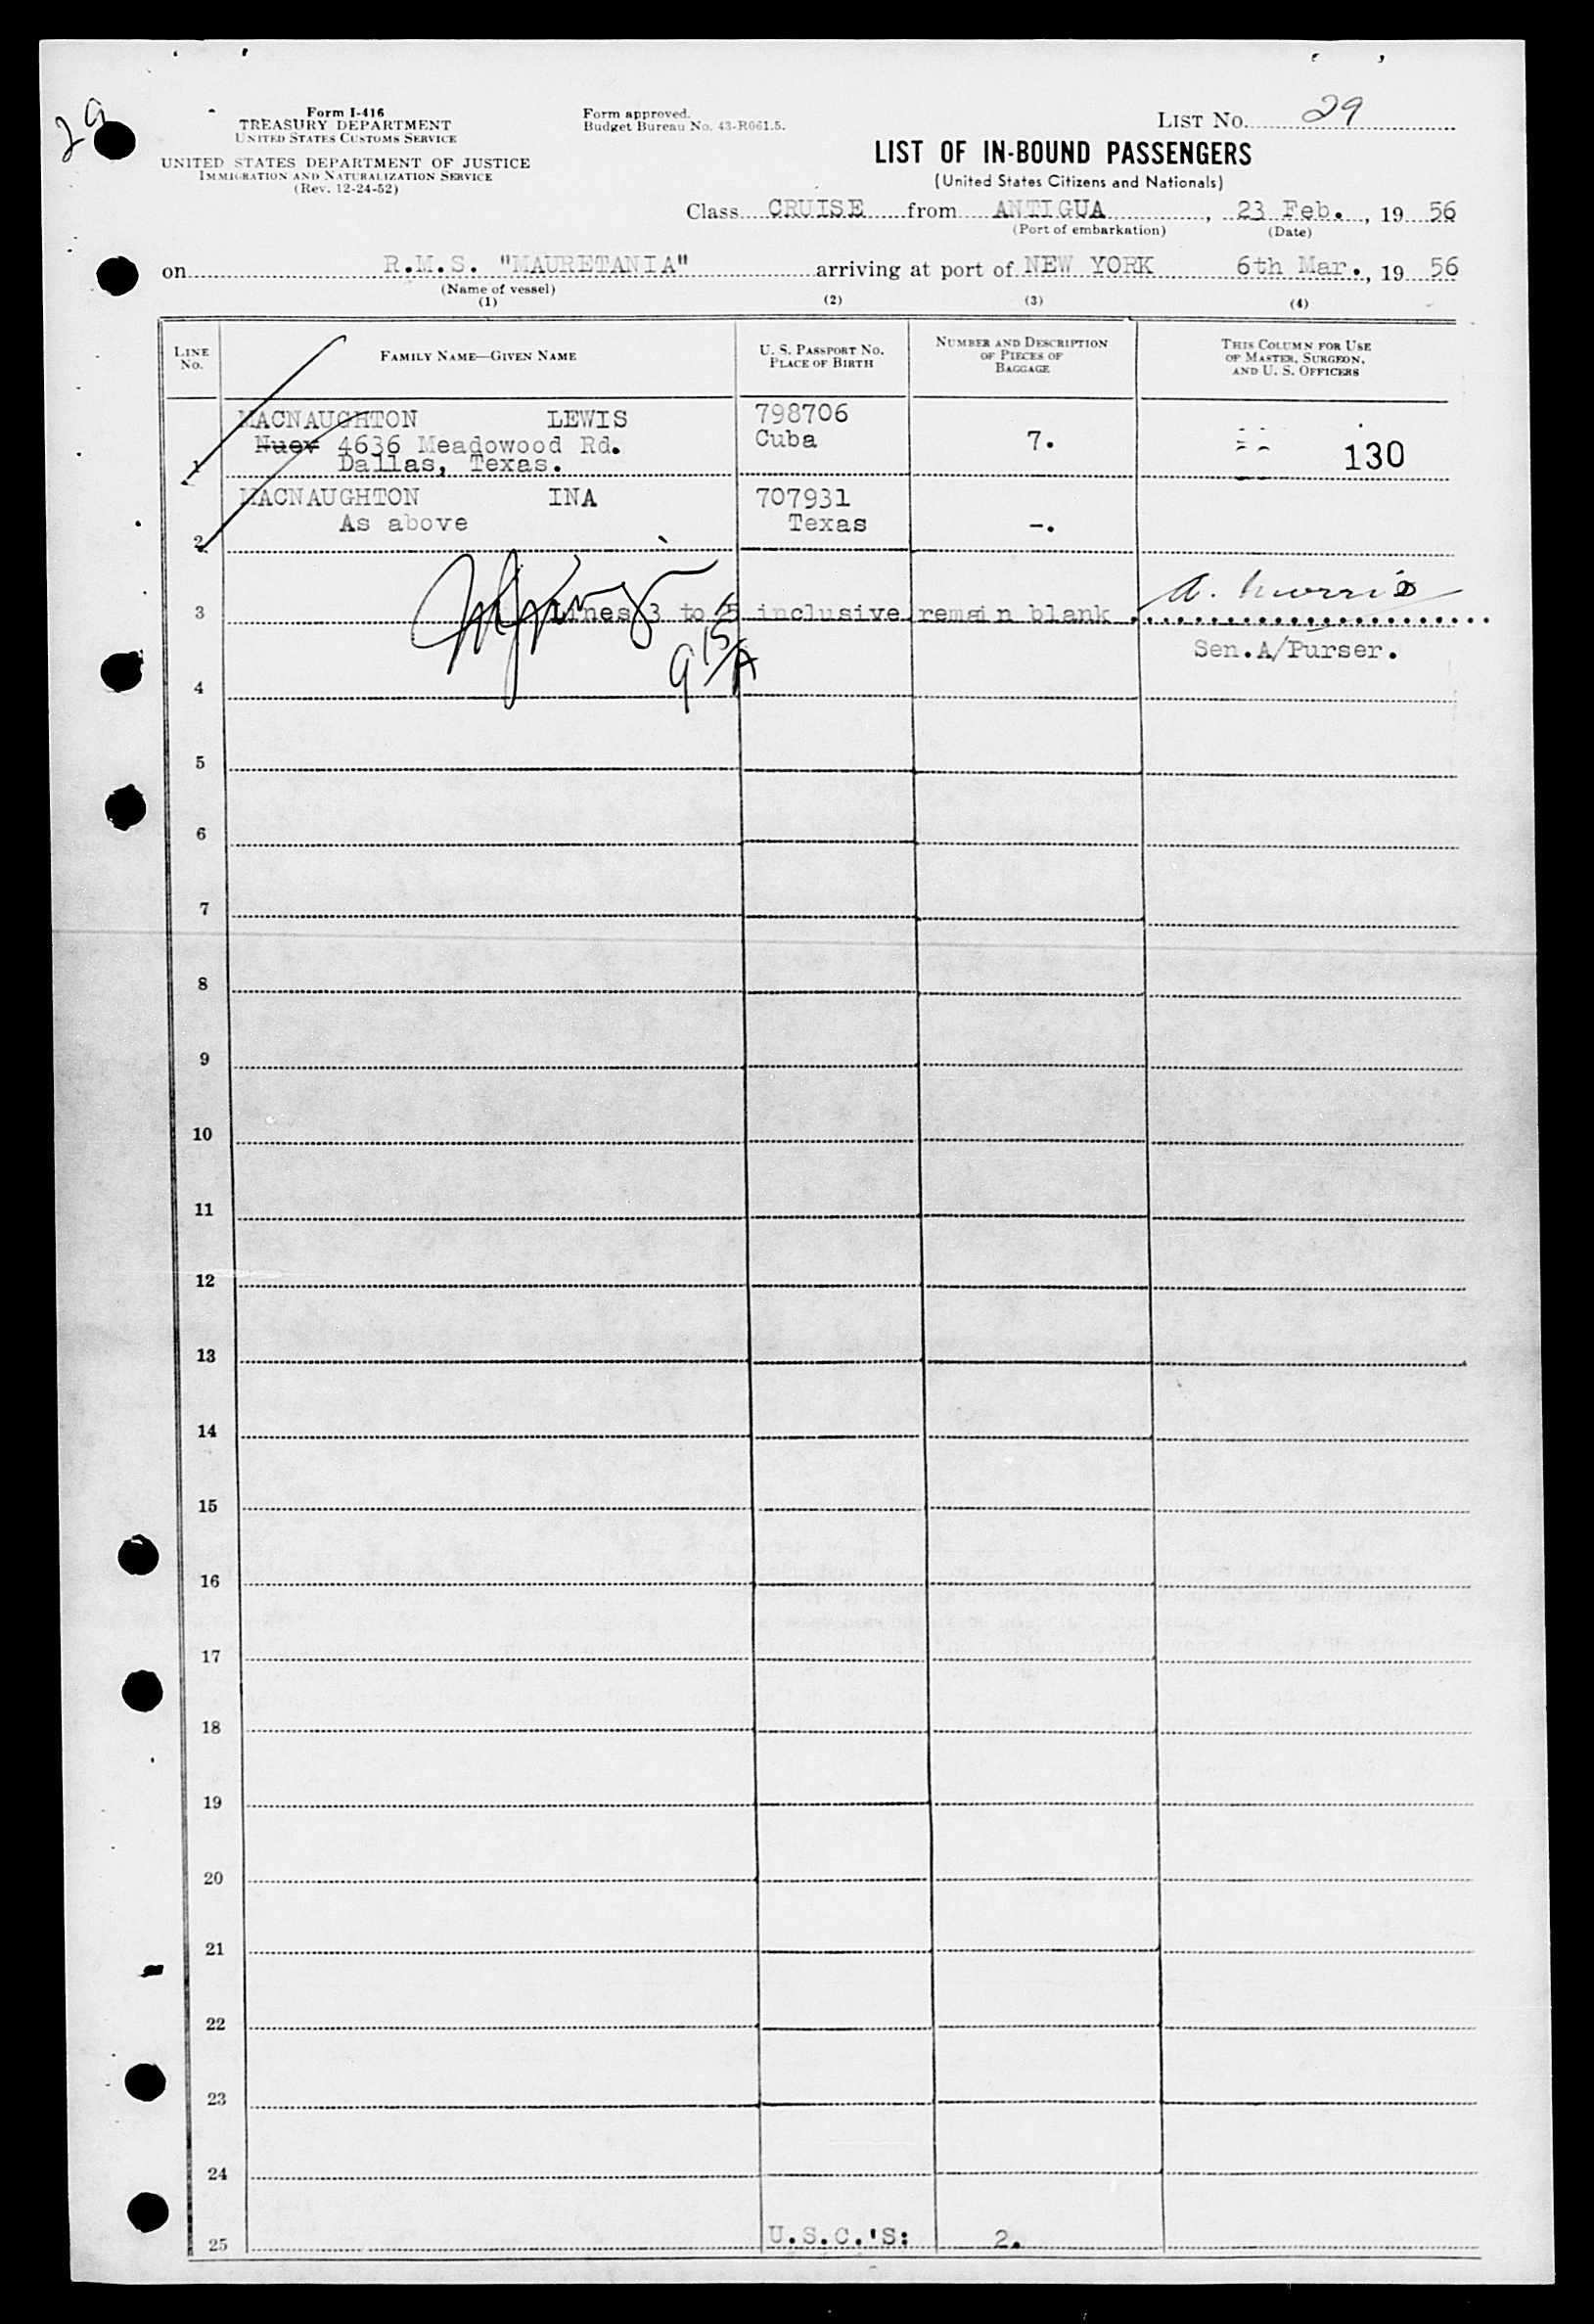 29
Form I-416
TREASURY DEPARTMENT
UNITED STATES CUSTOMS SERVICE
UNITED STATES DEPARTMENT OF JUSTICE
IMMIGRATION AND NATURALIZATION SERVICE
(Rev. 12-24-52)
Form approved.
Budget Bureau No. 43-R061.5.
LIST No. 29
LIST OF IN-BOUND PASSENGERS
(United States Citizens and Nationals)
Class CRUISE from ANTIGUA, 23 Feb., 19 56
(Port of embarkation) (Date)
on R.M.S. "MAURETANIA" arriving at port of NEW YORK 6th Mar., 19 56
(Name of vessel)
(1) (2) (3) (4)
LINE No. FAMILY NAME—GIVEN NAME U. S. PASSPORT NO. PLACE OF BIRTH NUMBER AND DESCRIPTION OF PIECES OF BAGGAGE THIS COLUMN FOR USE OF MASTER, SURGEON, AND U. S. OFFICERS
MACNAUGHTON LEWIS 798706
Nuev 4636 Meadowood Rd. Cuba 7. 130
1 Dallas, Texas.
MACNAUGHTON INA 707931
As above Texas -.
2
3 Lines 3 to 5 inclusive remain blank A. Morris
Sen.A/Purser.
4
5
6
7
8
9
10
11
12
13
14
15
16
17
18
19
20
21
22
23
24
25 U.S.C.'S: 2.